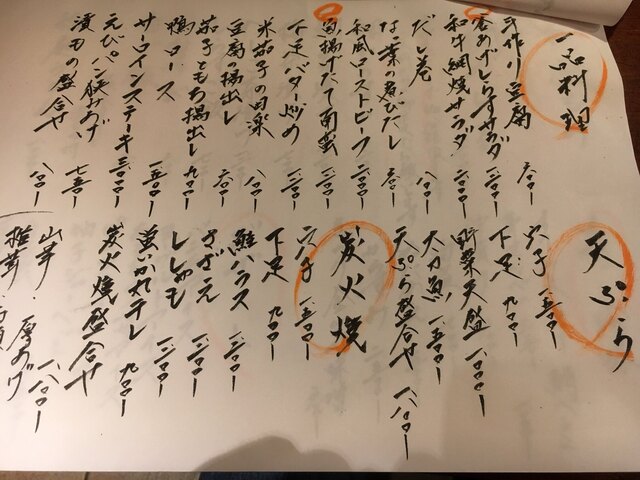 一品料理
手作り豆腐 六〇〇ー
釜あげしらすサラダ 一二〇〇ー
和牛網焼サラダ 二〇〇〇ー
だし巻 八〇〇ー
な葉の煮びたし 六〇〇ー
和風ローストビーフ 二〇〇〇ー
南蛮 一二〇〇ー
下足バター炒め 一二〇〇ー
米茄子の田楽 八〇〇ー
豆腐の揚出し 六〇〇ー
茄子ともち揚出し 九〇〇ー
鴨ロース 一五〇〇ー
サーロインステーキ 三〇〇〇ー
えびパン挟みあげ 七五〇ー
漬もの盛合せ 八〇〇ー
天ぷら
穴子 一五〇〇ー
下足 九〇〇ー
野菜天盛 一〇〇〇ー
太刀魚 一五〇〇ー
天ぷら盛合せ 一八〇〇ー
炭火焼
穴子 一五〇〇ー
下足 九〇〇ー
鮭ハラス 一二〇〇ー
さざえ 一二〇〇ー
ししゃも 一二〇〇ー
蛍いか一夜干し 九〇〇ー
炭火焼盛合せ
山芋・厚あげ 一八〇〇ー
椎茸・